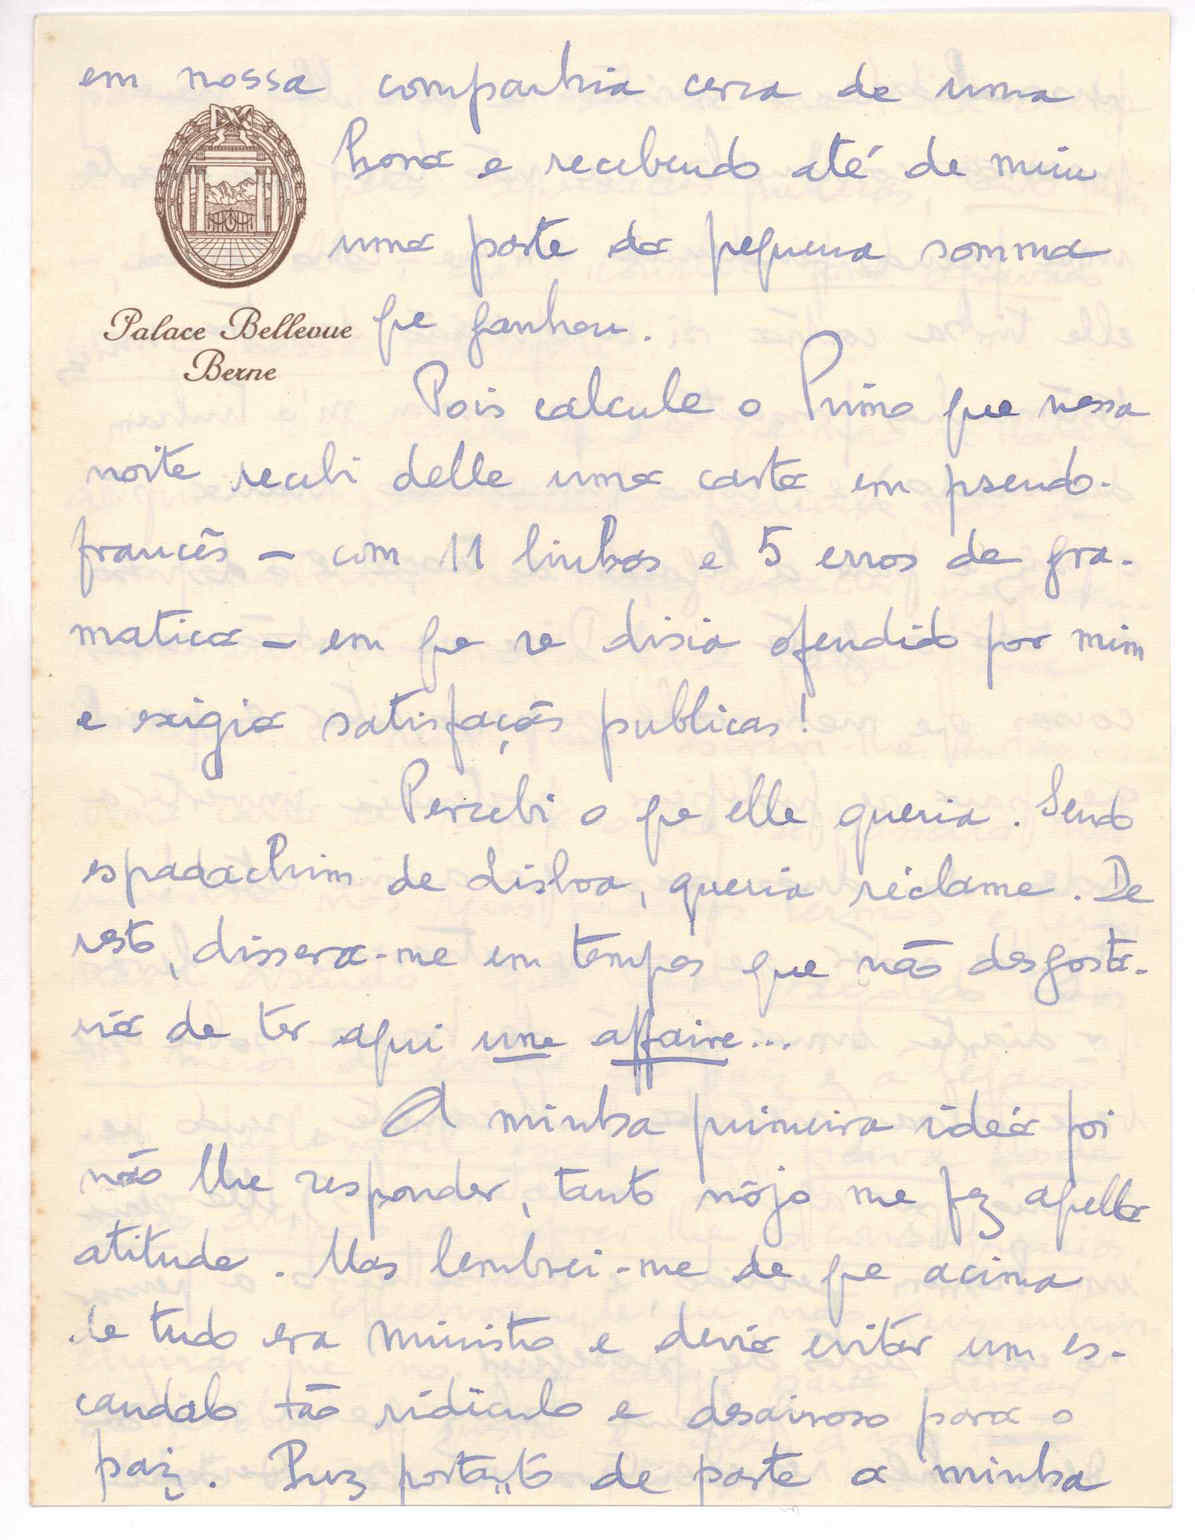 em nossa companhia cerca de uma
hora e recebendo até de mim
uma parte da pequena somma
Palace Bellevue
Berne
que ganhou.
Pois calcule o Primo que nessa
noite recebi delle uma carta em pseudo-
francês – com 11 linhas e 5 erros de gra-
matica – em que se disia ofendido por mim
e exigia satisfações publicas!
Percebi o que elle queria. Sendo
espadachim de Lisboa, queria réclame. De
resto, dissera-me em tempos que não desgosta-
ria de ter aqui une affaire...
A minha primeira ideia foi
não lhe responder, tanto nôjo me fez aquella
atitude. Mas lembrei-me de que acima
de tudo era Ministro e devia evitar um es-
candalo tão ridiculo e desairoso para o
paiz. Puz portanto de parte a minha